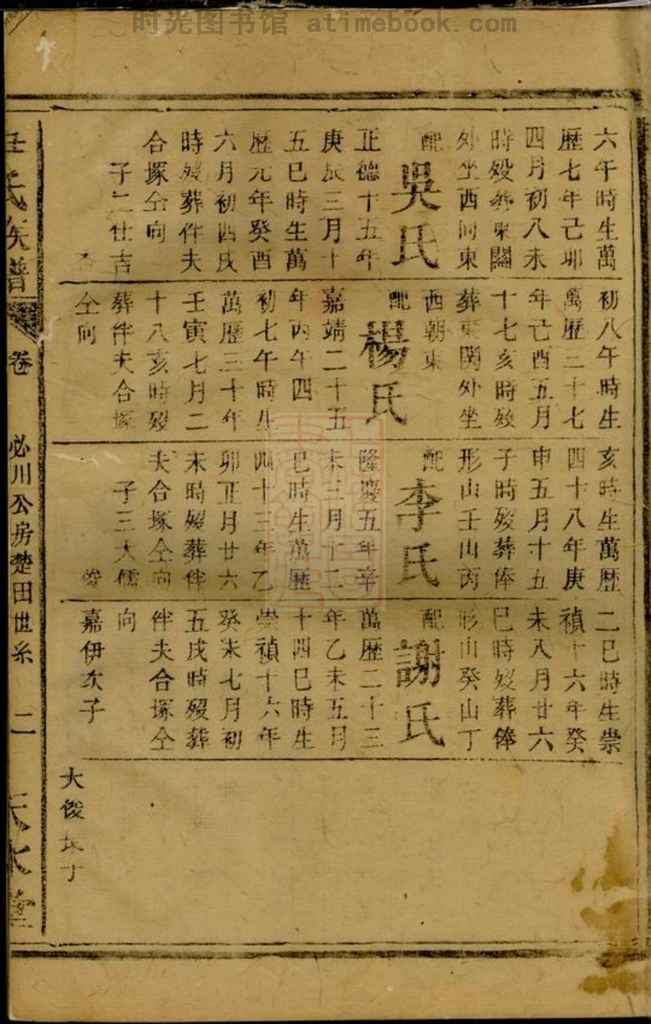 时光图书馆 atimebook.com
六午時生萬
歷七年己卯
四月初八未
時殁葬東關
外坐西向東
配
吳氏
正德十五年
庚辰三月十
五巳時生萬
歷元年癸酉
六月初四戌
時殁葬伴夫
合塚仝向
子二仕吉
初八午時生
萬歷三十七
年己酉五月
十七亥時殁
葬東関外坐
西朝東
配
楊氏
嘉靖二十五
年丙午四
初七午時生
萬歷三十年
壬寅七月二
十八亥時殁
葬伴夫合塚
仝向
亥時生萬歷
四十八年庚
申五月十五
子時殁葬俸
形山壬山丙
配
李氏
隆慶五年辛
未三月十二
巳時生萬歷
四十三年乙
卯正月廿六
未時殁葬伴
夫合塚仝向
子三大儒
二巳時生崇
禎十六年癸
未八月廿六
巳時殁葬俸
形山癸山丁
配
謝氏
萬歷二十三
年乙未五月
十四巳時生
崇禎十六年
癸未七月初
五戌時殁葬
伴夫合塚仝
向
嘉伊次子
大俊次子
氏族譜
卷
必川公房楚田世系
二
天水堂